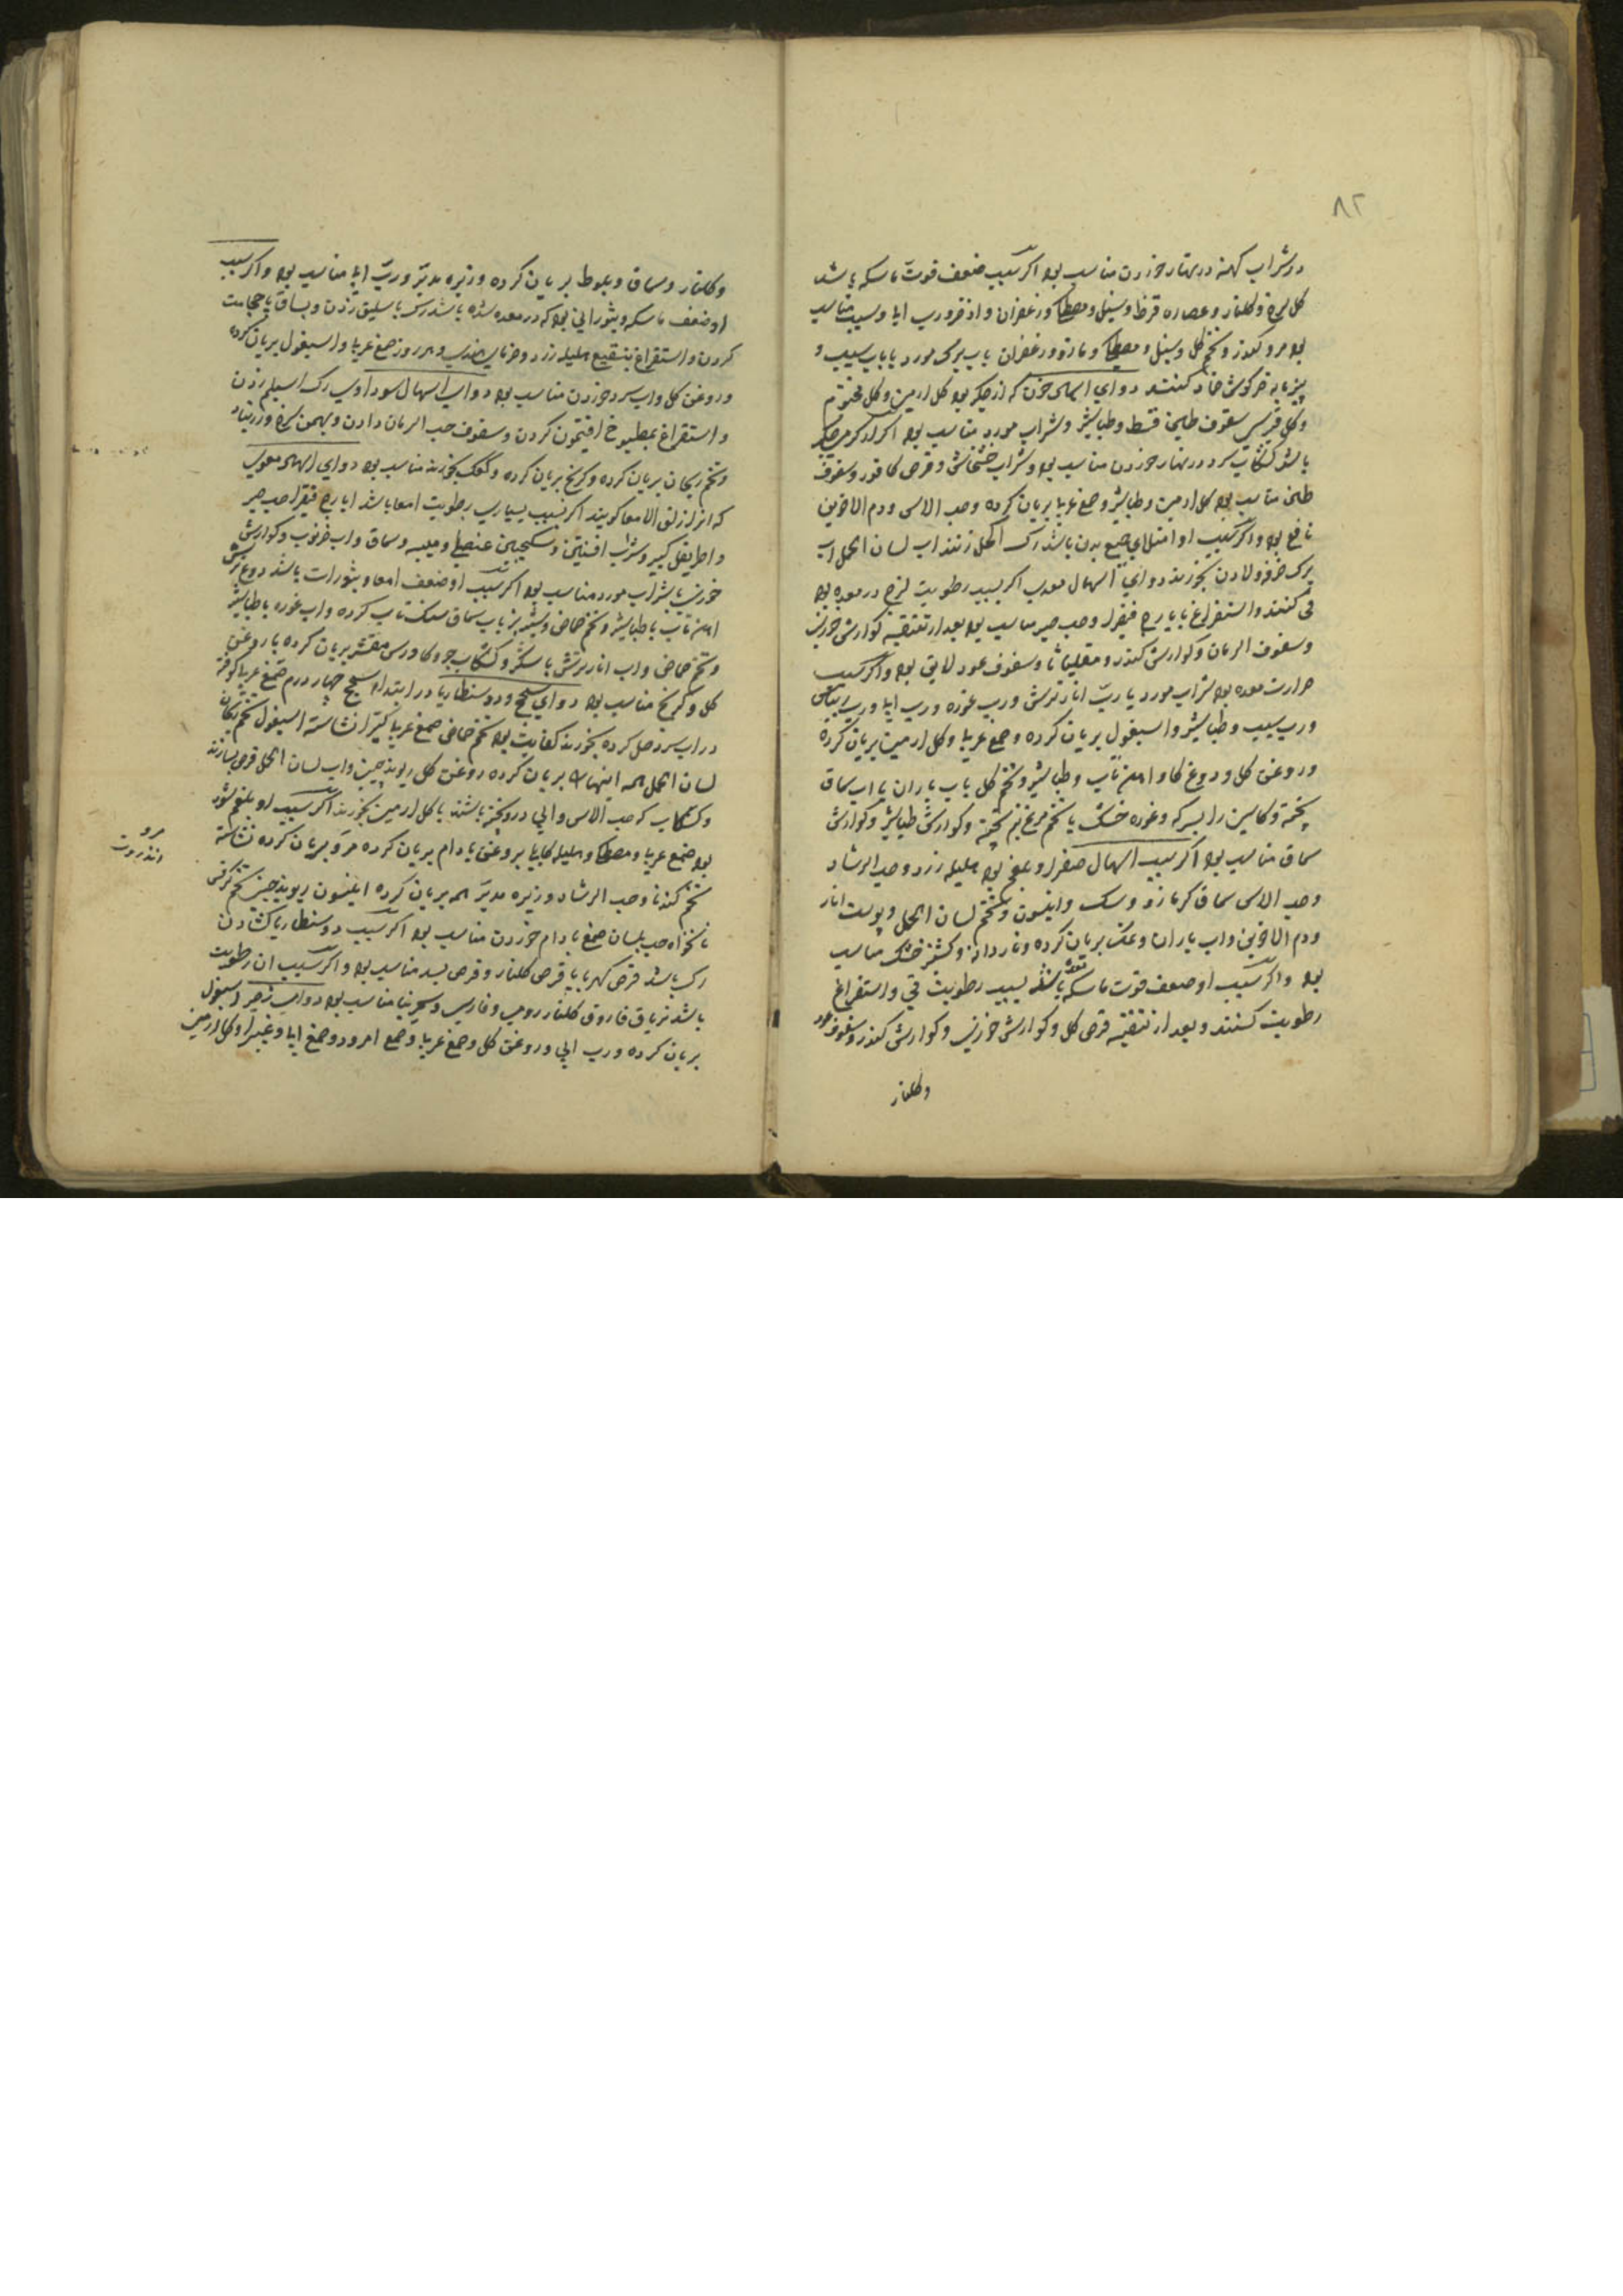 ٨٢
در شراب کهنه در نهار خوردن مناسب بود اکر سبب ضعف قوت ماسکه باشد
کل سرخ و کلنار و عصاره قرظ و سنبل و مصطکی و زعفران و اذخر و رب ابا و سیب مناسب
بود مر و کندر و تخم کل و سنبل و مصطکی و مازو و زعفران باب برک مورد یا باب سیب و
پنیرمایه خرکوش ضماد کنند دوای اسهال خون که از جکر بود کل ارمنی و کل مختوم
و کل قبرسی سفوف طین قسط و طباشیر و شراب مورد مناسب بود اکر از کرمی جکر
باشد کشکاب سرد در نهار خوردن مناسب بود و شراب خشخاش و قرص کافور و سفوف
طین مناسب بود کل ارمنی و طباشیر و صمغ عربا بریان کرده وحب الاس و دم الاخوین
نافع بود و اکر سبب او امتلای جمیع بدن باشد رک اکحل زنند اب لسان الحمل اب
برک خرفه و لادن بخورند دوای اسهال معدی اکر بسبب رطوبت لزج در معده بود
قی کنند و استفراغ بایارج فیقرا وحب صبر مناسب بود بعد از تنقیه کوارش خوزی
و سفوف الرمان و کوارش کندر و مقلیاثا و سفوف عود لایق بود و اکر سبب
حرارت معده بود شراب مورد یا رب انار ترش و رب غوره و رب ابا و رب ریباس
و رب سیب و طباشیر و اسبغول بریان کرده و صمغ عربا و کل ارمنی بریان کرده
و روغن کل و دوغ کاو اهن تاب و طباشیر و تخم کل باب باران یا اب سماق
پخته و کاسنی را بسرکه و غوره خشک یا تخم مرغ نیم پخته و کوارش طباشیر و کوارش
سماق مناسب بود اکر سبب اسهال صفرا و بلغم بود هلیله زرد وحب الرشاد
وحب الاس سماق کرمازو و سک و انیسون و تخم لسان الحمل و پوست انار
و دم الاخوین واب باران و عنب بریان کرده و ناردانه و کشنیز خشک مناسب
بود و اکر سبب او ضعف قوت ماسکه معده باشد بسبب رطوبت قی و استفراغ
رطوبت کنند و بعد از تنقیه قرص کل و کوارش خوزی و کوارش کندر و سفوف عود
و کلنار
و کلنار و سماق و بلوط بریان کرده و زیره مدبر و رب ابا مناسب بود و اکر سبب
او ضعف ماسکه و بثوراتی بود که در معده شده باشد رک باسلیق زدن و بساق یا حجامت
کردن و استفراغ بنقیع هلیله زرد و خرمای هندی و هر روز صمغ عربا و اسبغول بریان کرده
و روغن کل واب سرد خوردن مناسب بود دوای اسهال سوداوی رک اسیلم زدن
و استفراغ بمطبوخ افتیمون کردن و سفوف حب الرمان دادن و بهمن سرخ و زرنباد
و تخم ریحان بریان کرده و کرنج بریان کرده و کعک بخورند مناسب بود دوای اسهال معوی
که انرا زلق الامعا کویند اکر بسبب بسیاری رطوبت امعا باشد ایارج فیقرا حب صبر
و اطریفل کبیر و شراب افسنتین و سکنجبین عنصلی و میبه و سماق واب خرنوب و کوارش
خوزی یا شراب مورد مناسب بود اکر سبب او ضعف امعا و بثورات باشد دوغ ترش
اهن تاب با طباشیر و تخم حماض و شیر بز باب سماق سنک تاب کرده واب غوره با طباشیر
و تخم حماض واب انار ترش با سکر و کشکاب جو و کاورس مقشر بریان کرده با روغن
کل و کرنج مناسب بود دوای سحج و دوسنطاریا در ابتداء سحج چهار درم صمغ عربا کوفته
در اب سرد حل کرده بخورند کفایت بود تخم حماض صمغ عربا کتیرا نشاسته اسبغول تخم ریحان
لسان الحمل همه اینها بریان کرده روغن کل ریوند چینی واب لسان الحمل قرص بسازند
و کشکاب که حب الاس و ابی درو پخته باشند با کل ارمنی بخورند اکر سبب او بلغم شور
بود صمغ عربا و مصطکی و هلیله کابلی بروغن بادام بریان کرده مرو بریان کرده نشاسته
تخم کندنا وحب الرشاد و زیره مدبر همه بریان کرده انیسون ریوند چینی تخم کرفس
نانخواه حب بلسان صمغ بادام خوردن مناسب بود اکر سبب دوسنطاریا کشادن
رک باشد قرص کهربا یا قرص کلنار و قرص بسد مناسب بود و اکر سبب ان رطوبت
باشد تریاق فاروق کلنار رومی و فارسی و سنجرینا مناسب بود دوای زحیر اسبغول
بریان کرده و رب ابی و روغن کل و صمغ عربا و صمغ امرود و صمغ ابا و غبیرا و کل ارمنی
مرو
انذروت